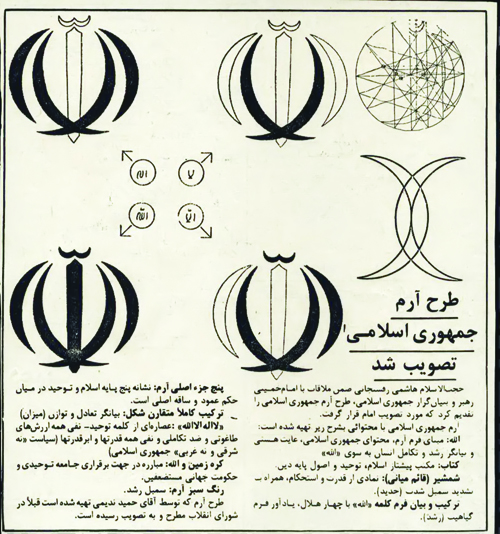 لا
اله
الّا
اللّه
طرح آرم
جمهوری اسلامی
تصویب شد
حجت‌الاسلام هاشمی رفسنجانی ضمن ملاقات با امام‌خمینی
رهبر و بنیان‌گزار جمهوری اسلامی، طرح آرم جمهوری اسلامی را
تقدیم کرد که مورد تصویب امام قرار گرفت.
آرم جمهوری اسلامی با محتوائی بشرح زیر تهیه شده است:
الله: مبنای فرم آرم، محتوای جمهوری اسلامی، غایت هستی
و بیانگر رشد و تکامل انسان به سوی «الله»
کتاب: مکتب پیشتاز اسلام، توحید و اصول پایه دین.
شمشیر (قائم میانی): نمادی از قدرت و استحکام، همراه با
تشدید سمبل شدت (حدید).
ترکیب و بیان فرم کلمه «الله» با چهار هلال، یادآور فرم
گیاهیت (رشد).
پنج جزء اصلی آرم: نشانه پنج پایه اسلام و توحید در میان
حکم عمود و ساقه اصلی است.
ترکیب کاملاً متقارن شکل: بیانگر تعادل و توازن (میزان)
«لااله‌الاالله»: عصاره‌ای از کلمه توحید– نفی همه ارزش‌های
طاغوتی و ضد تکاملی و نفی همه قدرتها و ابرقدرتها (سیاست «نه
شرقی و نه غربی» جمهوری اسلامی)
کره زمین و الله: مبارزه در جهت برقراری جامعه توحیدی و
حکومت جهانی مستضعفین.
رنگ سبز آرم: سمبل رشد.
طرح آرم که توسط آقای حمید ندیمی تهیه شده است قبلاً در
شورای انقلاب مطرح و به تصویب رسیده است.